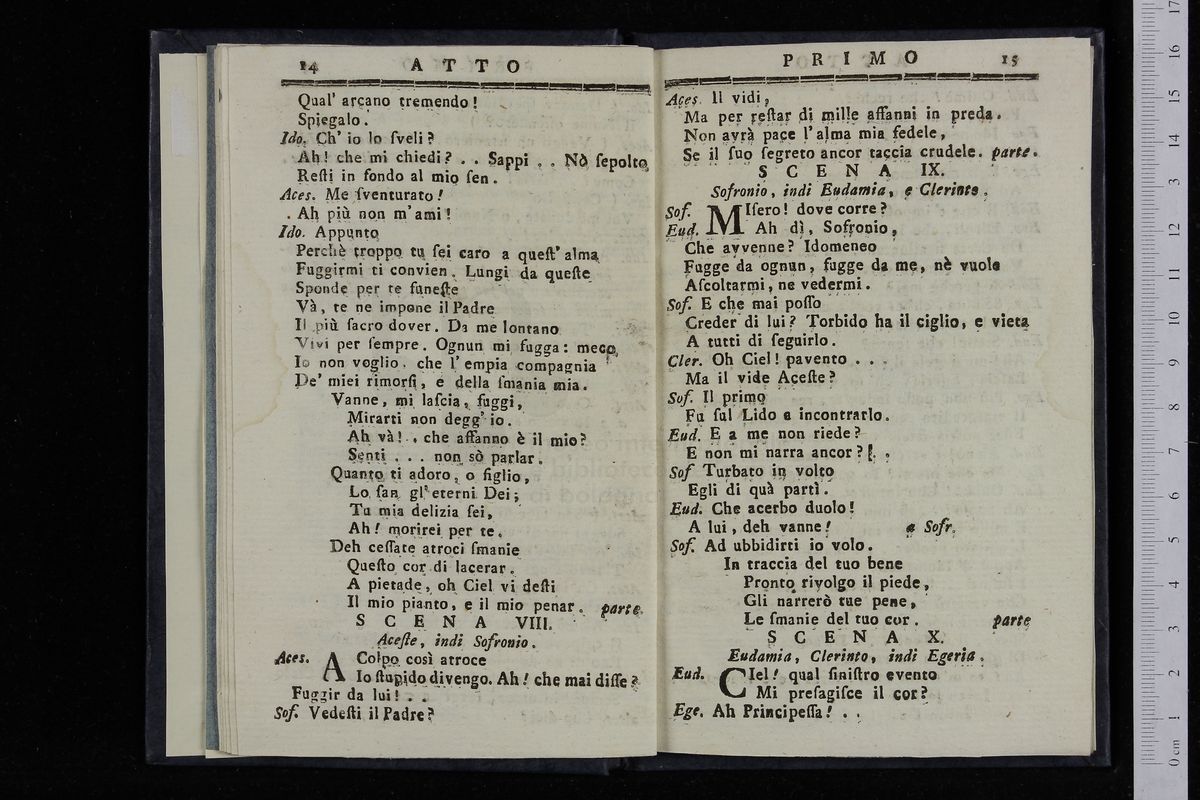 14 ATTO
Qual' arcano tremendo!
Spiegalo.
Ido. Ch' io lo ſveli?
Ah! che mi chiedi? . . Sappi . . Nò ſepolto
Reſti in fondo al mio ſen.
Aces. Me ſventurato!
Ah più non m'ami!
Ido. Appunto
Perchè troppo tu ſei caro a queſt' alma
Fuggirmi ti convien. Lungi da queſte
Sponde per te funeſte
Và, te ne impone il Padre
Il più ſacro dover. Da me lontano
Vivi per ſempre. Ognun mi fugga: meco
Io non voglio, che l' empia compagnia
De' miei rimorſi, e della ſmania mia.
Vanne, mi laſcia, fuggi,
Mirarti non degg' io.
Ah và! . che affanno è il mio?
Senti . . . non sò parlar.
Quanto ti adoro, o figlio,
Lo ſan gl' eterni Dei;
Tu mia delizia ſei,
Ah! morirei per te.
Deh ceſſate atroci ſmanie
Queſto cor di lacerar.
A pietade, oh Ciel vi deſti
Il mio pianto, e il mio penar. parte.
SCENA VIII.
Aceſte, indi Sofronio.
Aces. A Colpo così atroce
Io ſtupido divengo. Ah! che mai diſſe?
Fuggir da lui! . .
Sof. Vedeſti il Padre?
PRIMO 15
Aces. Il vidi,
Ma per reſtar di mille affanni in preda.
Non avrà pace l'alma mia fedele,
Se il ſuo ſegreto ancor taccia crudele. parte.
SCENA IX.
Sofronio, indi Eudamia, e Clerinto.
Sof. MIſero! dove corre?
Eud. Ah dì, Sofronio,
Che avvenne? Idomeneo
Fugge da ognun, fugge da me, nè vuole
Aſcoltarmi, ne vedermi.
Sof. E che mai poſſo
Creder di lui? Torbido ha il ciglio, e vieta
A tutti di ſeguirlo.
Cler. Oh Ciel! pavento . . .
Ma il vide Aceſte?
Sof. Il primo
Fu ſul Lido a incontrarlo.
Eud. E a me non riede?
E non mi narra ancor? . .
Sof Turbato in volto
Egli di quà partì.
Eud. Che acerbo duolo!
A lui, deh vanne! a Sofr.
Sof. Ad ubbidirti io volo.
In traccia del tuo bene
Pronto rivolgo il piede,
Gli narrerò tue pene,
Le ſmanie del tuo cor. parte
SCENA X.
Eudamia, Clerinto, indi Egeria.
Eud. CIel! qual ſiniſtro evento
Mi preſagiſce il cor?
Ege. Ah Principeſſa! . .
0 cm 1 2 3 4 5 6 7 8 9 10 11 12 13 14 15 16 17